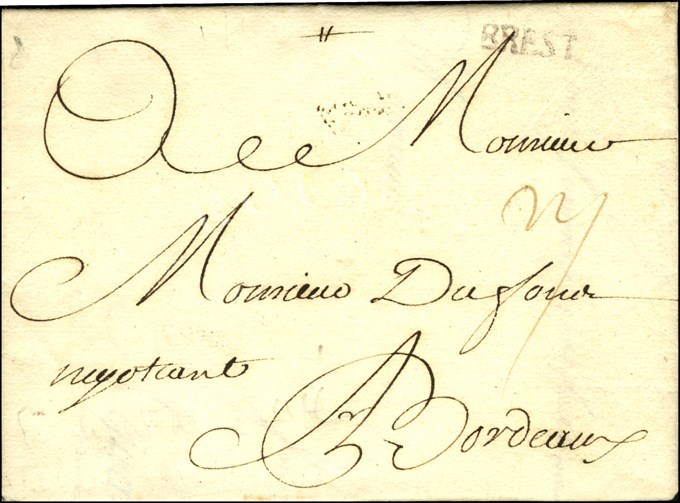 BREST
A Monsieur
Monsieur Dufour
negotiant
A Bordeaux